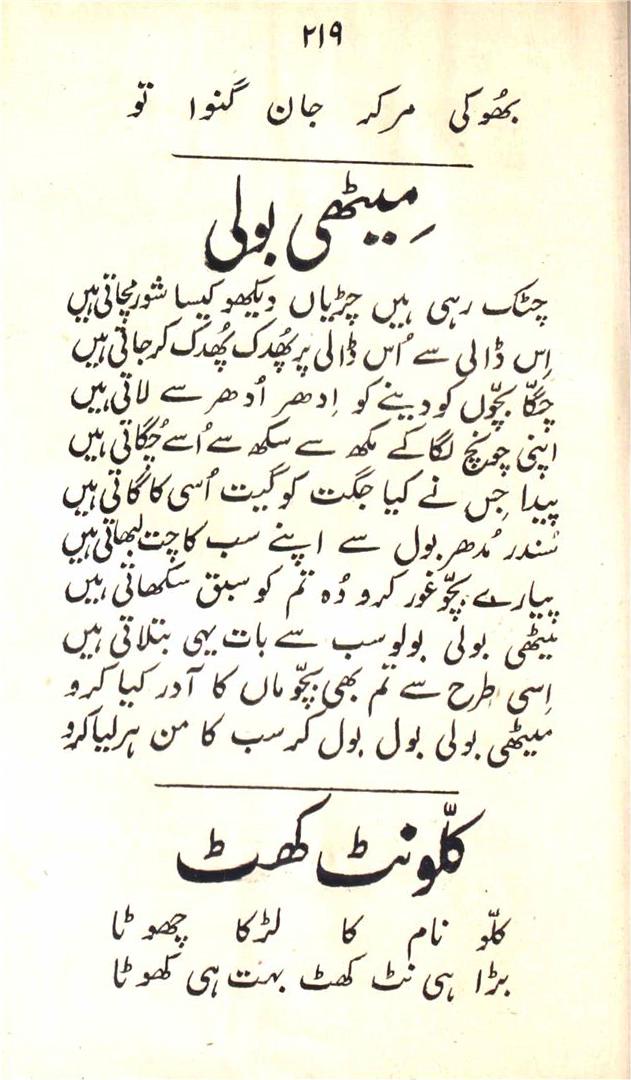 ۲۱۹
بھُوکی مرکر جان گنوا تو
مِیٹھی بولی
چٹک رہی ہیں چڑیاں دیکھو کیسا شور مچاتی ہیں
اِس ڈالی سے اُس ڈالی پر پھُدک پھُدک کر جاتی ہیں
چگّا بچّوں کو دینے کو اِدھر اُدھر سے لاتی ہیں
اپنی چونچ لگا کے مکھ سے سکھ سے اُسے چُگاتی ہیں
پیدا جِس نے کیا جگت کو گیت اُسی کا گاتی ہیں
سُندر مُدھر بول سے اپنے سب کا چت لبھاتی ہیں
پیارے بچّو غور کرو وُہ تم کو سبق سکھاتی ہیں
میٹھی بولی بولو سب سے بات یہی بتلاتی ہیں
اِسی طرح سے تم بھی بچّو ماں کا آدر کیا کرو
میٹھی بولی بول بول کر سب کا من ہر لیا کرو
کلّو نٹ کھٹ
کلّو نام کا لڑکا چھوٹا
بڑا ہی نٹ کھٹ بہت ہی کھوٹا